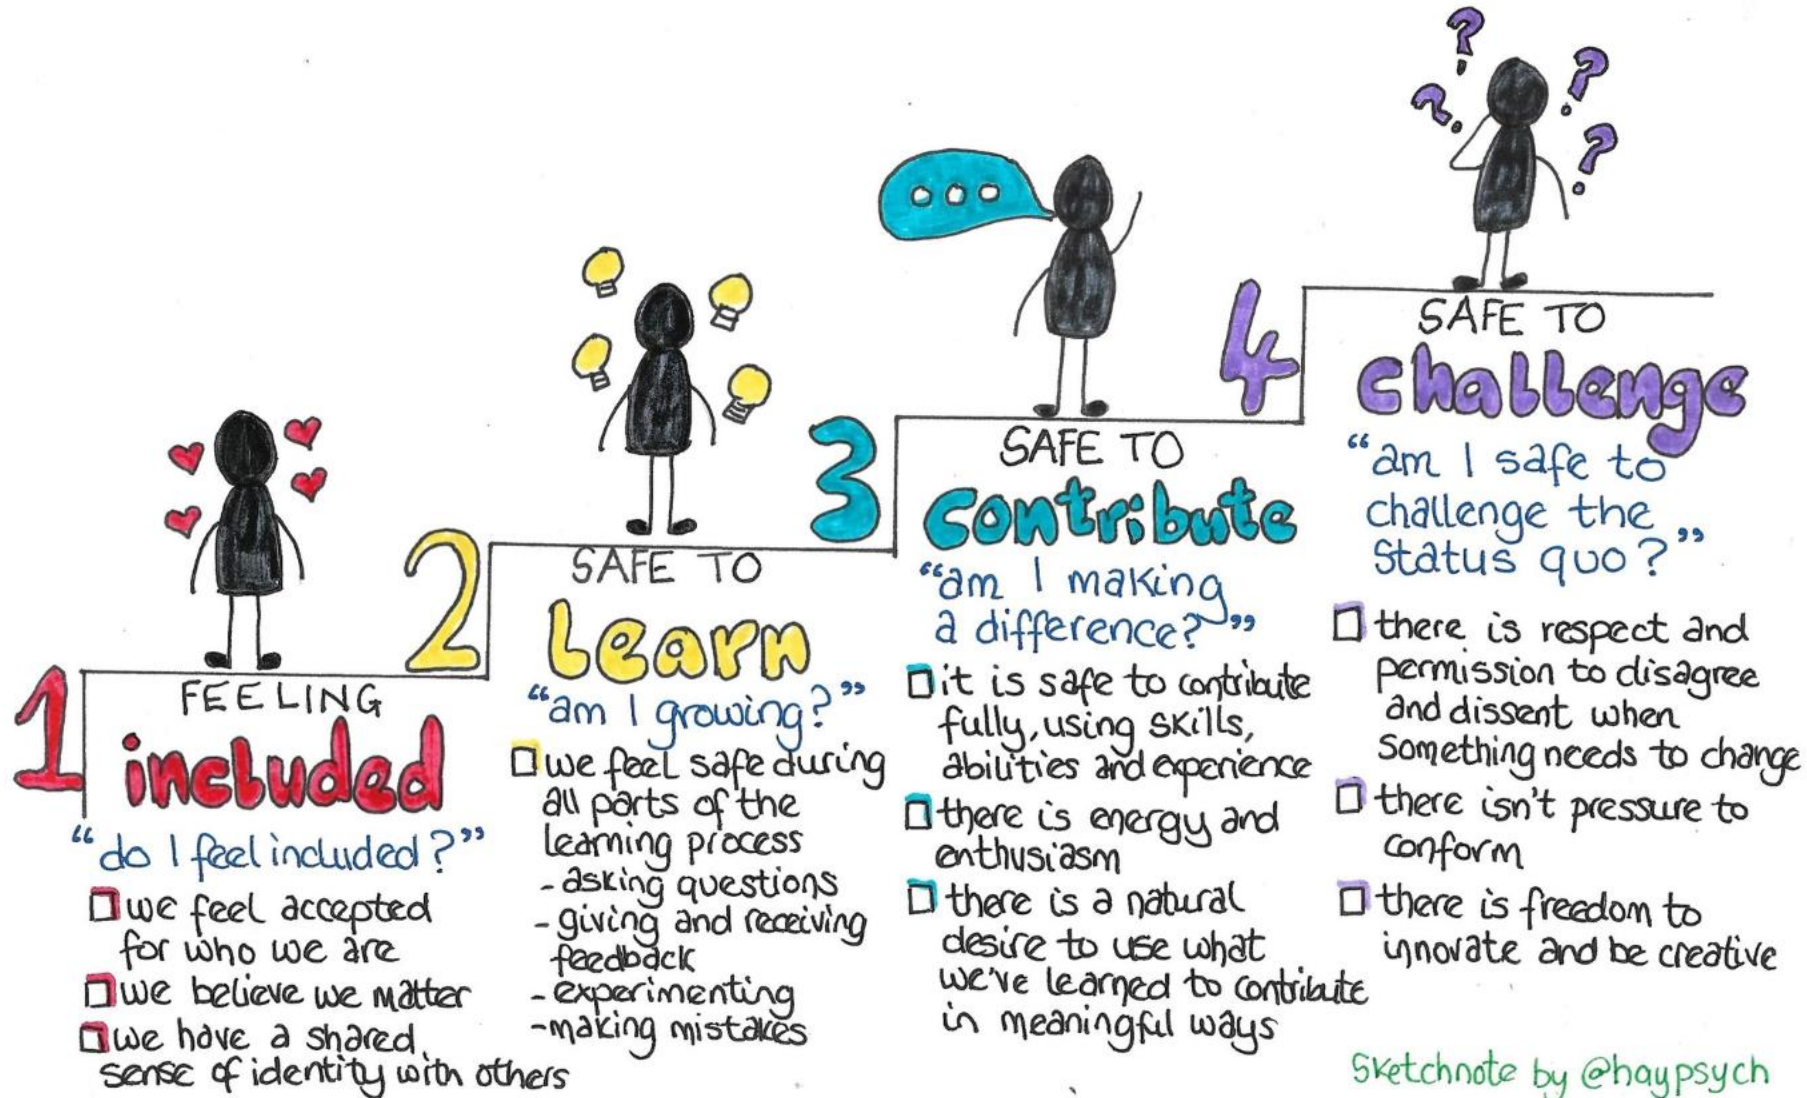 1
FEELING
included
"do I feel included?"
we feel accepted
for who we are
we believe we matter
we have a shared
sense of identity with others
2
SAFE TO
Learn
"am I growing?"
we feel safe during
all parts of the
learning process
- asking questions
- giving and receiving
feedback
- experimenting
- making mistakes
3
SAFE TO
contribute
"am I making
a difference?"
it is safe to contribute
fully, using skills,
abilities and experience
there is energy and
enthusiasm
there is a natural
desire to use what
we've learned to contribute
in meaningful ways
4
SAFE TO
challenge
"am I safe to
challenge the
status quo?"
there is respect and
permission to disagree
and dissent when
something needs to change
there isn't pressure to
conform
there is freedom to
innovate and be creative
Sketchnote by @haypsych